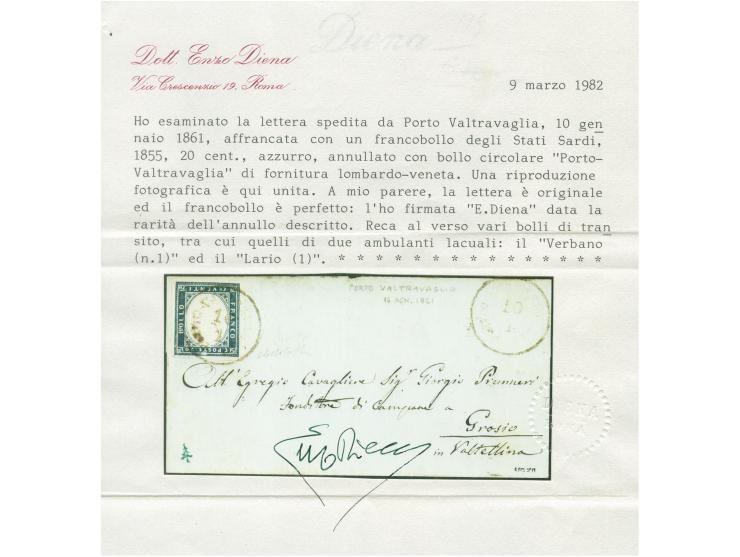 Diena
Dott. Enzo Diena
Via Crescenzio 19. Roma
9 marzo 1982
Ho esaminato la lettera spedita da Porto Valtravaglia, 10 gen
naio 1861, affrancata con un francobollo degli Stati Sardi,
1855, 20 cent., azzurro, annullato con bollo circolare "Porto-
Valtravaglia" di fornitura lombardo-veneta. Una riproduzione
fotografica è qui unita. A mio parere, la lettera è originale
ed il francobollo è perfetto: l'ho firmata "E.Diena" data la
rarità dell'annullo descritto. Reca al verso vari bolli di tran
sito, tra cui quelli di due ambulanti lacuali: il "Verbano
(n.1)" ed il "Lario (1)". * * * * * * * * * * * * * * *
PORTO VALTRAVAGLIA
FRANCO
BOLLO
10
All' Egregio Cavagliere Sig.r Giorgio Pruneri
Fonditore di Campane a
Grosio
in Valtellina